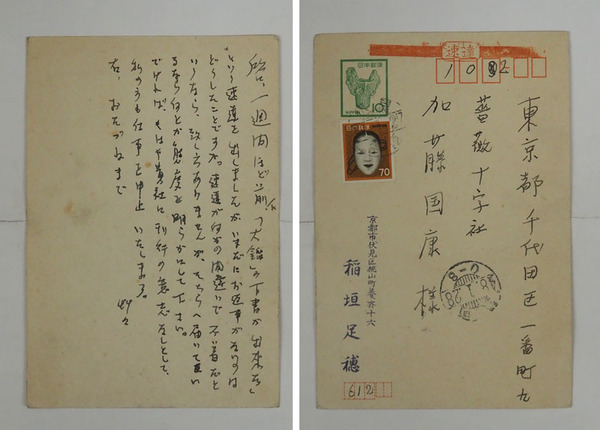 啓、一週間ほど前に「大錯」の下書が出来た
という速達を出しましたが、いまだにお返事がないのは
どうしたことですか。速達が何かの間違いで不着だと
いうなら、致し方ありませんが、そちらへ届いて
るなら何とか態度を明らかにして下さい。
でなければ、もはや貴社に刊行の意志なしとして、
私の方も仕事を中止いたします。
右、おたづねまで
艸々
速達
102
東京都千代田区一番町九
薔薇十字社
加藤国康様
日本郵便
10
日本郵便
70
京都市伏見区桃山町養斉十六
稲垣足穂
612